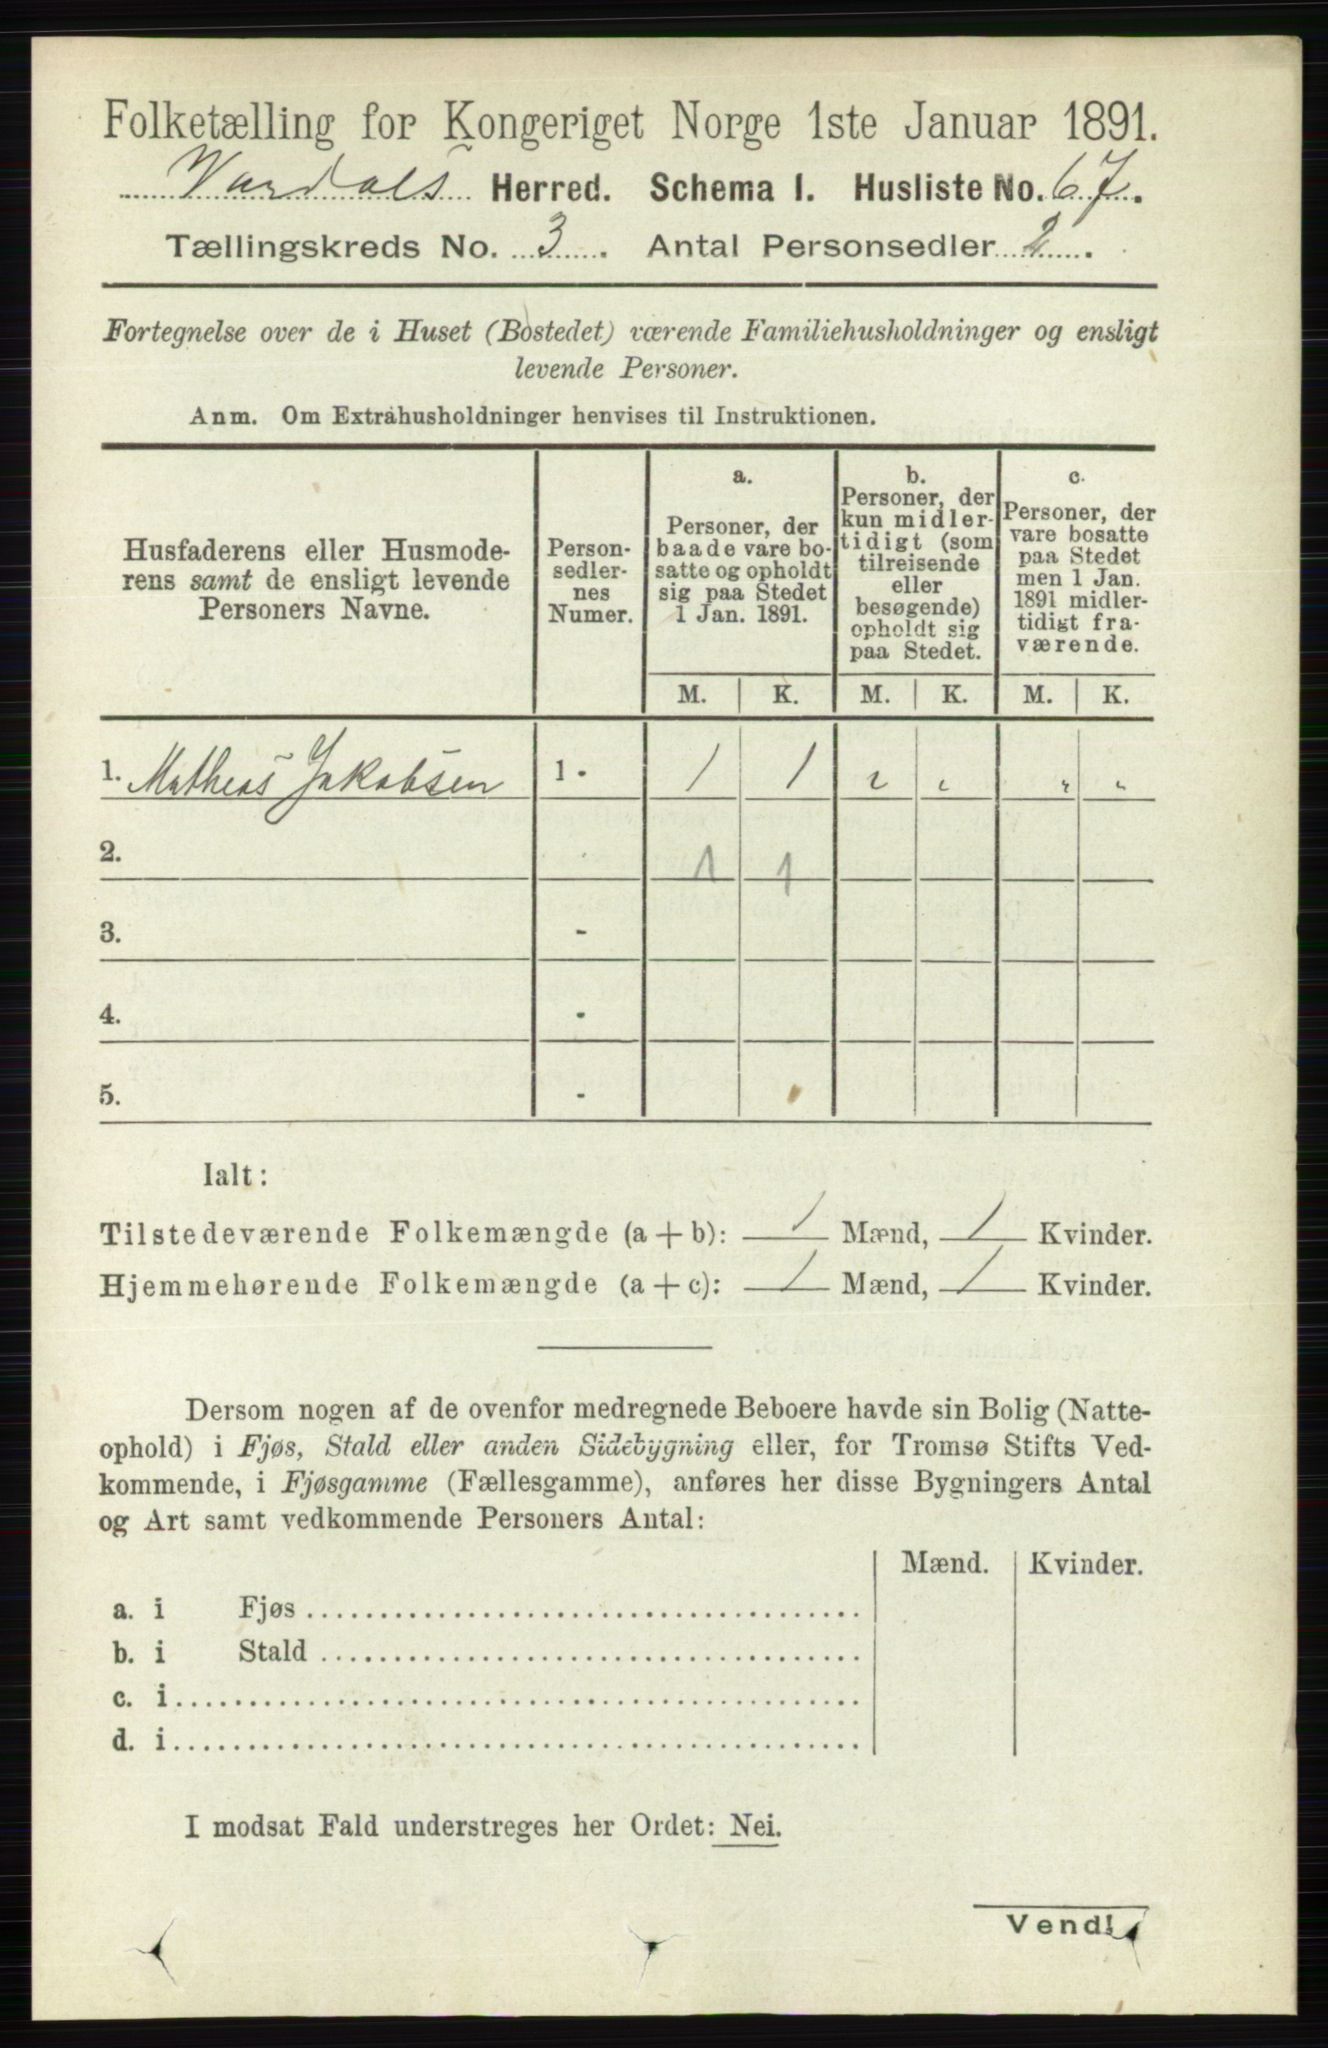 Folketælling for Kongeriget Norge 1ste Januar 1891.
Vardals Herred. Schema I. Husliste No. 67.
Tællingskreds No. 3. Antal Personsedler 2.
Fortegnelse over de i Huset (Bostedet) værende Familiehusholdninger og ensligt
levende Personer.
Anm. Om Extrahusholdninger henvises til Instruktionen.
Husfaderens eller Husmode-
rens samt de ensligt levende
Personers Navne.
Person-
sedler-
nes
Numer.
a.
Personer, der
baade vare bo-
satte og opholdt
sig paa Stedet
1 Jan. 1891.
b.
Personer, der
kun midler-
tidigt (som
tilreisende
eller
besøgende)
opholdt sig
paa Stedet.
c.
Personer, der
vare bosatte
paa Stedet
men 1 Jan.
1891 midler-
tidigt fra-
værende.
M. K. M. K. M. K.
1. Mathias Jakobsen 1 - 1 1 „ „ „ „
2. 1 1
3. -
4. -
5. -
Ialt:
Tilstedeværende Folkemængde (a + b): 1 Mænd, 1 Kvinder.
Hjemmehørende Folkemængde (a + c): 1 Mænd, 1 Kvinder.
Dersom nogen af de ovenfor medregnede Beboere havde sin Bolig (Natte-
ophold) i Fjøs, Stald eller anden Sidebygning eller, for Tromsø Stifts Ved-
kommende, i Fjøsgamme (Fællesgamme), anføres her disse Bygningers Antal
og Art samt vedkommende Personers Antal:
Mænd. Kvinder.
a. i Fjøs
b. i Stald
c. i
d. i
I modsat Fald understreges her Ordet: Nei.
Vend!